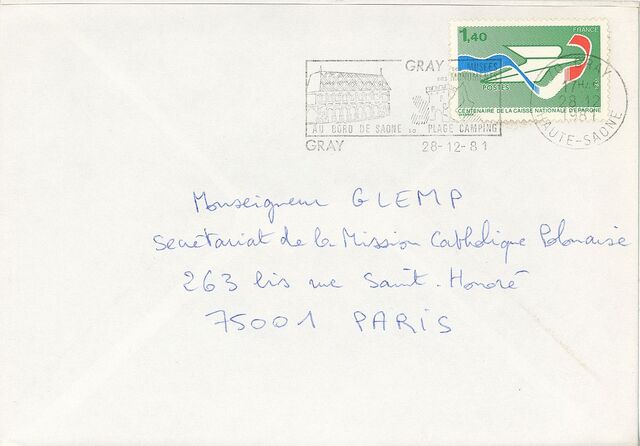 1,40
FRANCE
GRAY SES MUSÉES
SES MONUMENTS
POSTES
CENTENAIRE DE LA CAISSE NATIONALE D'EPARGNE
70 GRAY
17H45
28-12
1981
HAUTE-SAONE
AU BORD DE SAONE SA PLAGE CAMPING
GRAY 28-12-81
Monseigneur GLEMP
Secrétariat de la Mission Catholique Polonaise
263 bis rue Saint-Honoré
75001 PARIS